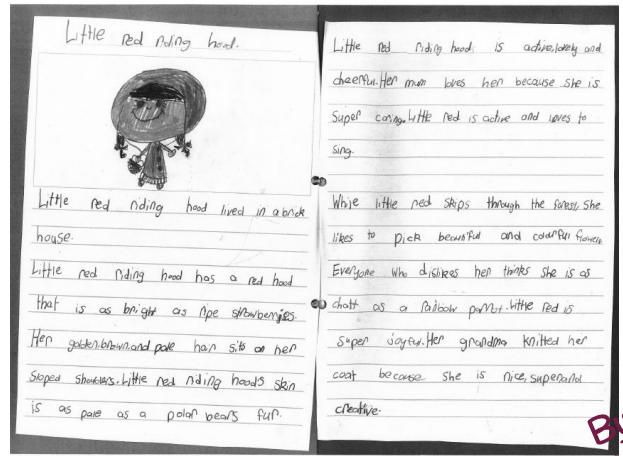 Little red riding hood.
Little red riding hood lived in a brick
house.
Little red riding hood has a red hood
that is as bright as ripe strawberries.
Her golden,brown,and pale hair sits on her
sloped shoulders.Little red riding hoods skin
is as pale as a polar bears fur.
Little red riding hood, is active,lovely and
cheerful.Her mum loves her because she is
super caring.Little red is active and loves to
sing.
While little red skips through the forest, she
likes to pick beautiful and colourful flowers
Everyone who dislikes her thinks she is as
as a rainbow parrot.Little red is
super joyful.Her grandma knitted her
coat because she is nice,super and
creative.
By